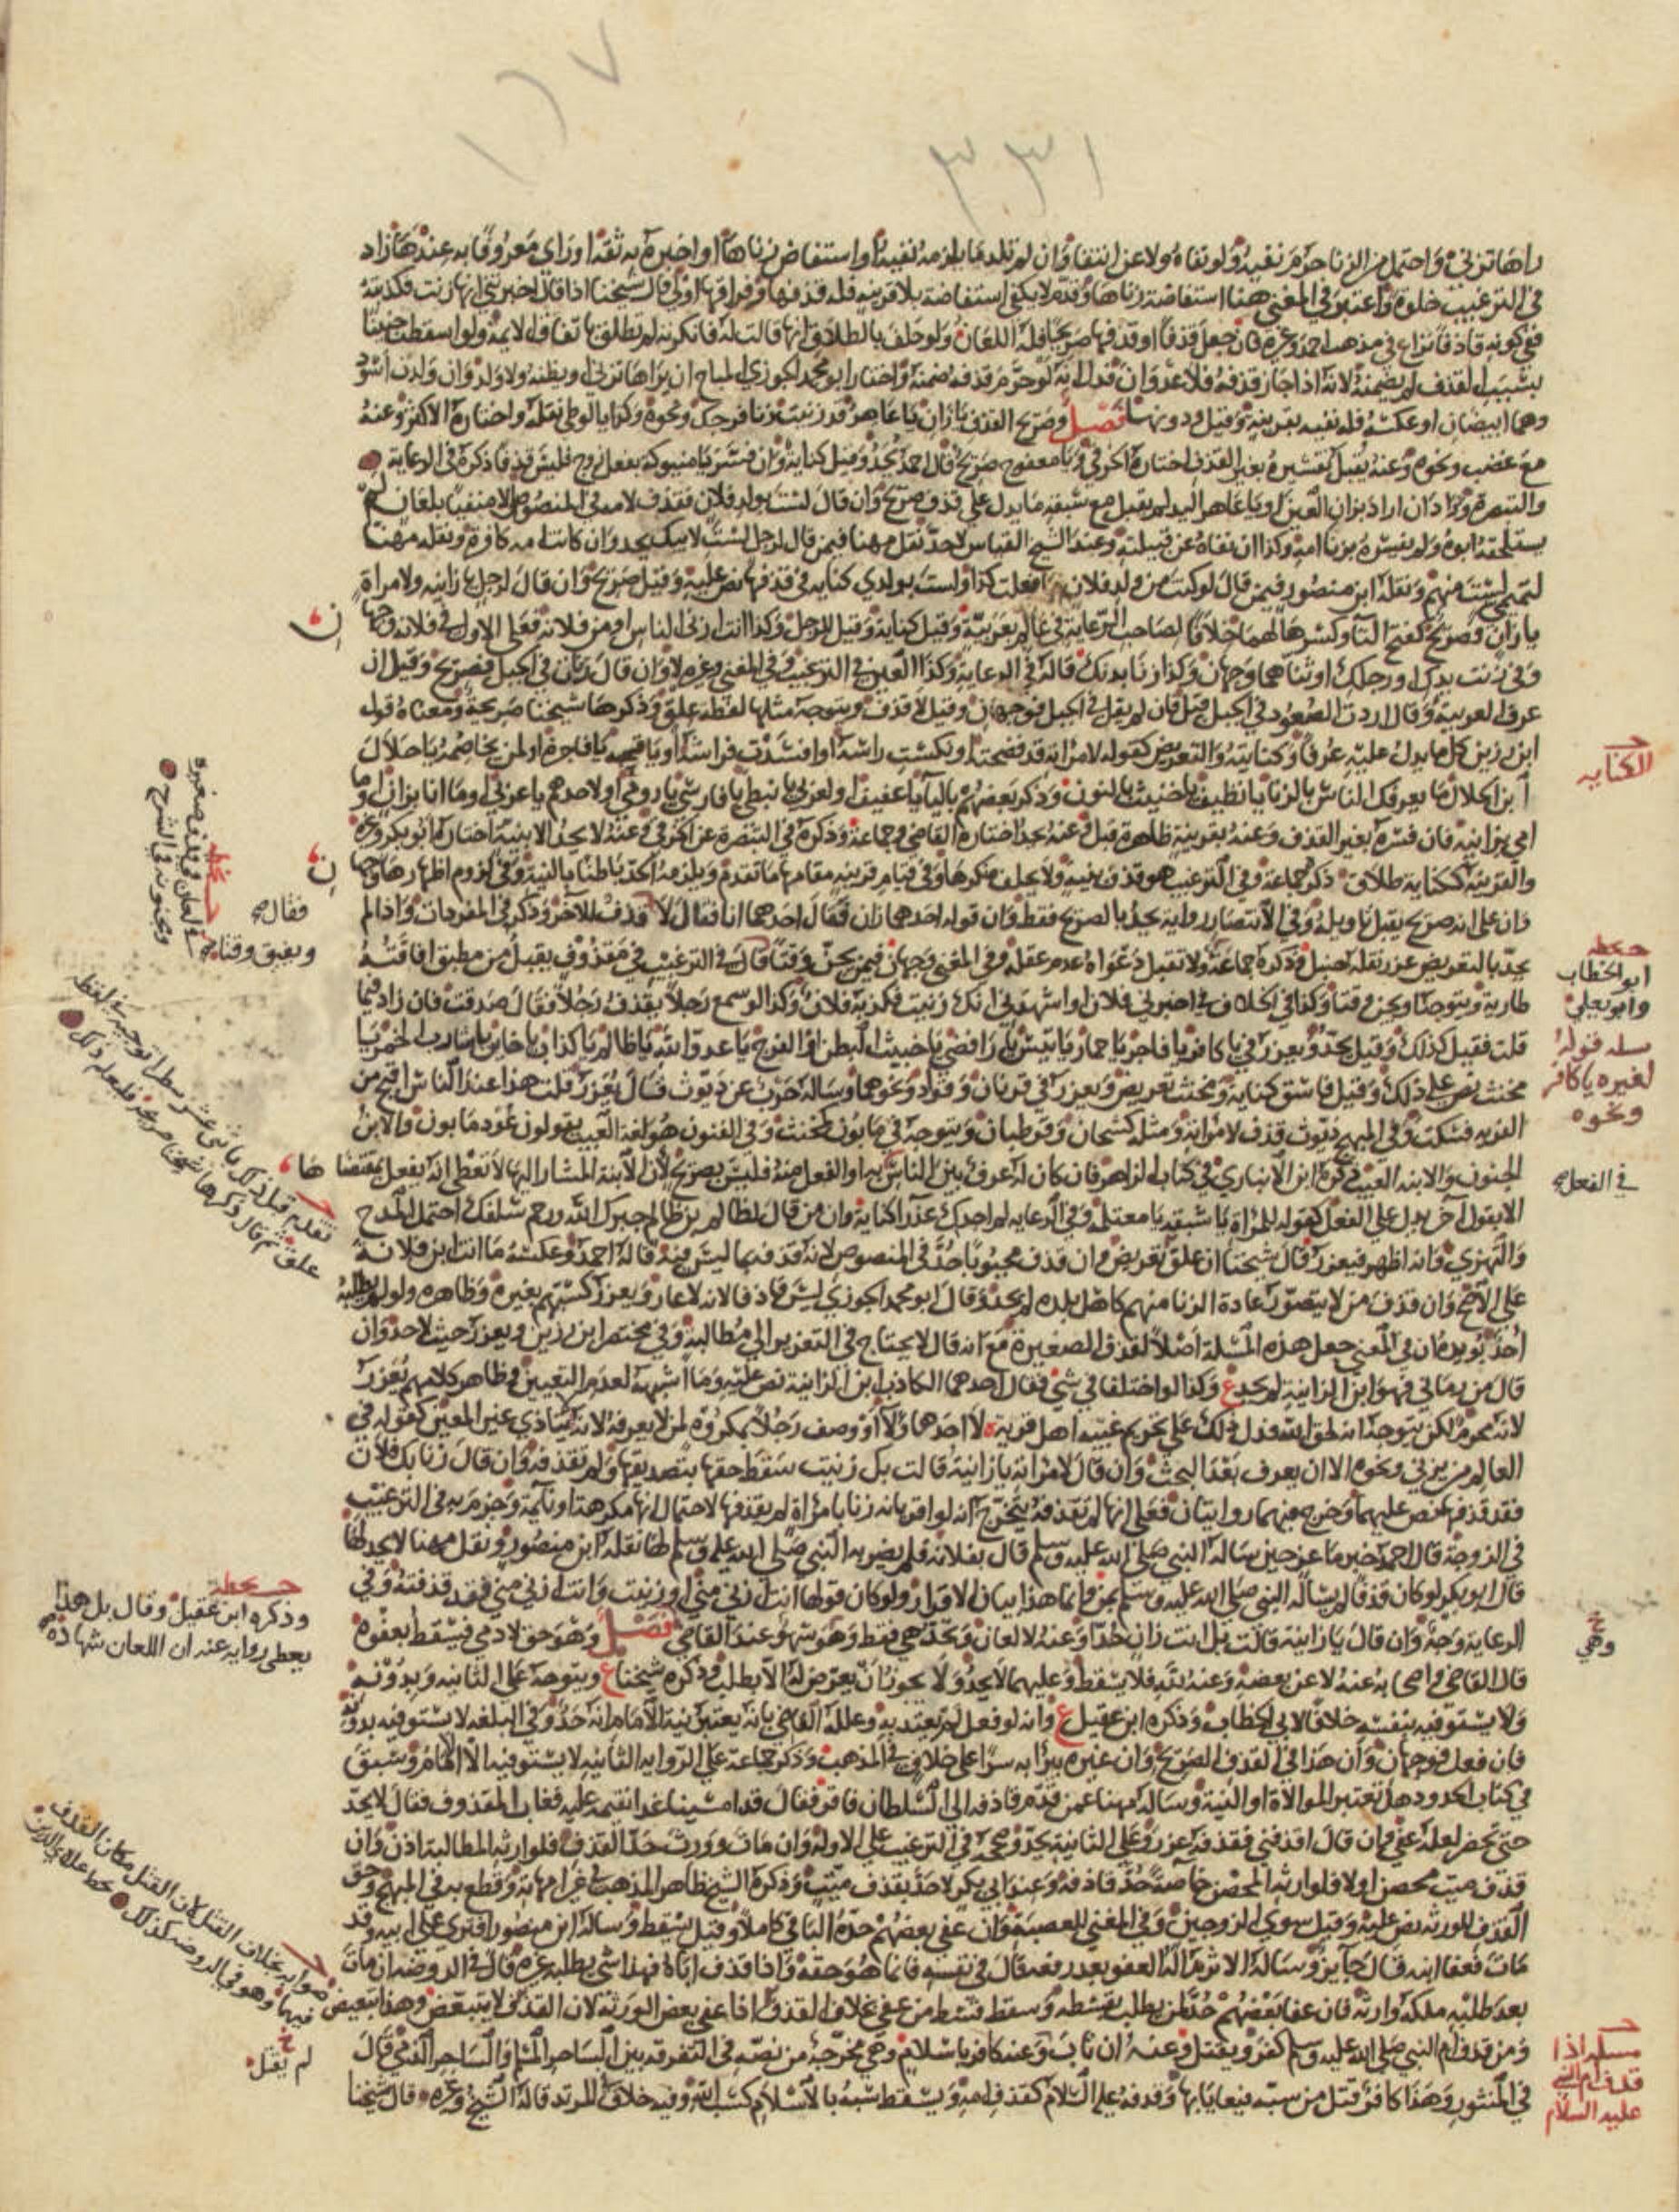 ١٦٧
٣٣١
راها تزني واحتمل من الزنا حرم نفيه ولو نفاه ولاعن انتفا وان لم تلد ما يلزمه نفيه او استفاض زناها او اخبره به ثقة او راى معروفا به عندها زاد
في الترغيب خلوة واعتبر في المغني هنا استفاضة زناها وقدم لا يكفي استفاضة بلا قرينة فله قذفها وفراقها اولى قال شيخنا اذا قال اخبرتني انها زنت فكذبته
ففي كونه قاذفا نزاع في مذهب احمد وغيره فان جعل قذفا او قذفها صريحا فله اللعان ولو حلف بالطلاق انها قالت له فانكرته لم تطلق باتفاق الائمة ولو اسقطت جنينا
بسبب القذف لم يضمنه لانه اذا جاز قذفه فلا عدوان قال لو حرم قذفه ضمنه واختار ابو محمد الجوزي المباح ان يراها تزني او يظنه ولا ولد وان ولدت اسود
وهما ابيضان او عكسه فله نفيه بقرينة وقيل ودونها فصل وصريح القذف يا زان يا عاهر قد زنيت زنا فرجك ونحوه وكذا يا لوطي نقله واختاره الاكثر وعنه
مع غضب ونحوه وعنه يقبل تفسيره بغير القذف اختاره الخرقي ويا معفوج صريح قال احمد يحد وقيل كناية وان فسر يا منيوكة بفعل زوج فليس قذفا ذكره في الرعاية
والتبصرة وزاد ان اراد بزان العين او يا عاهر اليد لم يقبل مع سبقه ما يدل على قذف صريح وان قال لست بولد فلان فقذف لامه في المنصوص الا منفيا بلعان لم
يستلحقه ابوه ولم يفسره بزنا امه وكذا ان نفاه عن قبيلته وعند الشيخ القياس لا حد نقل مهنا فيمن قال لرجل لست لابيك يحد وان كانت امه كافرة ونقله مهنا
لتميمي لست منهم ونقله ابن منصور فيمن قال لو كنت من ولد فلان ما فعلت كذا ولست بولدي كناية في قذفها نص عليه وقيل صريح وان قال لرجل يا زانية ولامراة
يا زان فصريح كفتح التا وكسرها لهما خلافا لصاحب الرعاية في عالم بعربية وقيل كناية وقيل للرجل وكذا انت ازنى الناس او من فلانة فعلى الاول في فلانة وجهان
وفي زنت يداك او رجلك او ثناهما وجهان وكذا زنا بدنك قاله في الرعاية وكذا العين في الترغيب وفي المغني وغيره لا وان قال زنات في الجبل فصريح وقيل ان
عرف العربية وقال اردت الصعود في الجبل قبل فان لم يقل في الجبل فوجهان وقيل لا قذف ويتوجه مثلها لفظة علق وذكرها شيخنا صريحة ومعناه قول
ابن رزين كل ما يدل عليه عرفا وكنايته والتعريض كقوله لامراته قد فضحته او نكست راسه او افسدت فراشه او يا قحبة يا فاجرة او لمن يخاصمه يا حلال
ابن الحلال ما يعرفك الناس بالزنا يا نظيف يا خنيث بالنون وذكر بعضهم بالياء يا عفيف او لعربي يا نبطي يا فارسي يا رومي او لاحدهم يا عربي او ما انا بزان او ما
امي بزانية فان فسره بغير القذف وعنه بقرينة ظاهرة قبل وعنه يحد اختاره القاضي وجماعة وذكره في التبصرة عن الخرقي وعنه لا يحد الا بنية اختاره ابو بكر وغيره
والقرينة ككناية طلاق ذكره جماعة وفي الترغيب هو قذف بنية ولا يحلف منكرها وفي قيام قرينة مقامها ما تقدم ويلزمه الحد باطنا بالنية وفي لزوم اظهارها وجهان
وان على انه صريح يقبل تاويله وفي الانتصار رواية يحد بالصريح فقط وان قوله احدهما زان فقال احدهما انا فقال لا قذف للاخر وذكره في المفردات واذا لم
يحد بالتعريض عزر نقله حنبل وذكره جماعة ولا تقبل دعواه عدم عقله وفي المغني وجهان فيمن يجن وقتا قال في الترغيب في مقذوف يقبل من مطبق افاقته
طارية ويتوجه او يجن وقتا وكفا في الخلاف في اخبرني فلان او اشهدني انك زنيت فكذبه فلان وكذا لو سمع رجلا يقذف رجلا فقال صدقت فان زاد فيما
قلت فقيل كذلك وقيل يحد ويعزر في يا كافر يا فاجر يا حمار يا تيس يا رافضي يا خبيث البطن او الفرج يا عدو الله يا ظالم يا كذاب يا خاين يا شارب الخمر يا
مخنث نص على ذلك وقيل فاسق كناية ومخنث تعريض ويعزر في قرنان وقواد ونحوهما وساله حرب عن ديوث فقال يعزر قلت هذا عند الناس اقبح من
الفرية فسكت وفي المبهج ديوث قذف لامراته ومثله كشحان وقرطبان ويتوجه في مابون كمخنث وفي الفنون هو لغة العيب يقولون عود مابون والابن
الجنون والابنة العيب ذكره ابن الانباري في كتاب الزاهر فان كان له عرف بين الناس به او الفعل منه فليس بصريح لان الابنة المشار اليها لا تعطي انه يفعل بمقتضاها
الا بقول اخر يدل على الفعل كقوله للمراة يا شبقة يا مغتلمة وفي الرعاية لم اجدك عذرا كناية وان من قال لظالم بن ظالم جبرك الله ورحم سلفك احتمل المدح
والتهزي وانه اظهر فيعزر قال شيخنا ان علق تعريض وان قذف مجبوبا حد في المنصوص لانه قذف بما ليس فيه قاله احمد وعكسه ما انت ابن فلانة
على الاصح وان قذف من لا يتصور عادة الزنا منهم كاهل بلده لم يحد وقال ابو محمد الجوزي ليس قاذفا لانه لا عار ويعزر كسبهم بغيره وظاهره ولو لم يطلبه
احد يؤيده ان في المغني جعل هذه المسلة اصلا لقذف الصغيرة مع انه قال لا يحتاج في التعزير الى مطالبة وفي مختصر ابن رزين ويعزر حيث لا حد وان
قال من رماني فهو ابن الزانية لم يحد ع وكذا لو اختلفا في شي فقال احدهما الكاذب ابن الزانية نص عليه وما اشبهه لعدم التعيين وظاهر كلامهم يعزر
لانه محرم لكن يتوجه انه لحق الله فدل ذلك على تحريم غيبة اهل قرية لا احد هؤلاء او وصف رجلا بمكروه لمن لا يعرفه لانه لا يتاذى غير المعين كقوله في
العالم من يزني ونحوه الا ان يعرف بعد البحث وان قال لامراته يا زانية قالت بل زنيت سقط حقها بتصديقها ولم تقذفه وان قال زنا بك فلان
فقد قذفهما نص عليهما وخرج فيهما روايتان فعلى انها لم تقذفه يتخرج انه لو اقر بانه زنا بامراة لم يقذفها لاحتمال انها مكرهة او نائمة وجزم به في الترغيب
في الزوجة قال احمد خبر ماعز حين ساله النبي صلى الله عليه وسلم قال بفلانة فلم يضربه النبي صلى الله عليه وسلم لها نقله ابن منصور ونقل مهنا لا يحد لها
قال ابو بكر لو كان قذفا لم يساله النبي صلى الله عليه وسلم بمن وانما هذا بيان لاقراره ولو كان قولها انت ازنى مني او زنيت وانت ازنى مني فقد قذفته وفي
الرعاية وجه وان قال يا زانية قالت بل انت زان حدا وعنه لا لعان وتحد هي فقط وهو سهو عند القاضي فصل وهو حق لادمي فيسقط بعفوه
قال القاضي واصحابه عنه لا عن بعضه وعنه لله فلا يسقط وعليهما لا يحد ولا يجوز ان يعرض له الا بطلب وذكره شيخنا ع ويتوجه على الثانية وبدونه
ولا يستوفيه بنفسه خلافا لابي الخطاب وذكره ابن عقيل ع وانه لو فعل لم يعتد به وعلله القاضي بانه يعتبر نية الامام انه حد وفي البلغة لا يستوفيه بدونه
فان فعل فوجهان وان هذا في القذف الصريح وان غيره يبرا به سرا على خلاف في المذهب وذكر جماعة على الرواية الثانية لا يستوفيه الا الامام وسبق
في كتاب الحدود هل تعتبر الموالاة او النية وساله مهنا عمن قدم قاذفه الى السلطان فاقر فقال قد امسينا غدا نقيمه عليه فغاب المقذوف فقال لا يحد
حتى يحضر لعله عفي وان قال اقذفني فقذفه عزر وعلى الثانية يحد وصححه في الترغيب على الاوله وان مات وورث حد القذف فلوارثه المطالبة اذن وان
قذف ميت محصن اولا فلوارثه المحصن خاصة حد قاذفه وعند ابي بكر لا حد بقذف ميت وذكره الشيخ ظاهر المذهب في غير امهاته وقطع به في المبهج وحق
القذف للورثة نص عليه وقيل سوى الزوجين وفي المغني للعصبة وان عفي بعضهم حده الباقي كاملا وقيل يسقط وساله ابن منصور افترى على ابيه وقد
مات فعفا ابنه قال جايز وساله الاثرم اله العفو بعد رفعه قال في نفسه فانما هو حقه واذا قذف اباه فهذا شي يطلبه غيره قال في الروضة ان مات
بعد طلبه ملكه وارثه فان عفا بعضهم حد لمن يطلب بقسطه وسقط قسط من عفي بخلاف القذف اذا عفي بعض الورثة لان القذف لا يتبعض وهذا يتبعض
ومن قذف ام النبي صلى الله عليه وسلم كفر ويقتل وعنه ان تاب وعنه كافر باسلام وهي مخرجة من نصه في التفرقة بين الساحر المسلم والساحر الذمي قال
في المنثور وهذا كافر قتل من سبه فيعايا بها وقذفه عليه السلام كقذف امه ويسقط سبه بالاسلام كسب الله وفيه خلاف للمرتد قاله الشيخ وغيره قال شيخنا
الكناية
ابو الخطاب
وابو يعلى
مسلة قوله
لغيره يا كافر
ونحوه
في الفعل صح
خ
وهي
مسلة اذا
قذف ام النبي
عليه السلام
ن
ن
فقال صح
ويفيق وقتا صح
تقدم قبل ذلك
علق ثم قال وذكرها شيخنا صريحة
وذكره ابن عقيل وقال بل هذا
يعطي رواية عنه ان اللعان شهادة
صوابه بخلاف القتل لان القتل مكان القذف
فيهما وهو في الروضة كذلك
خ
لم يقتل